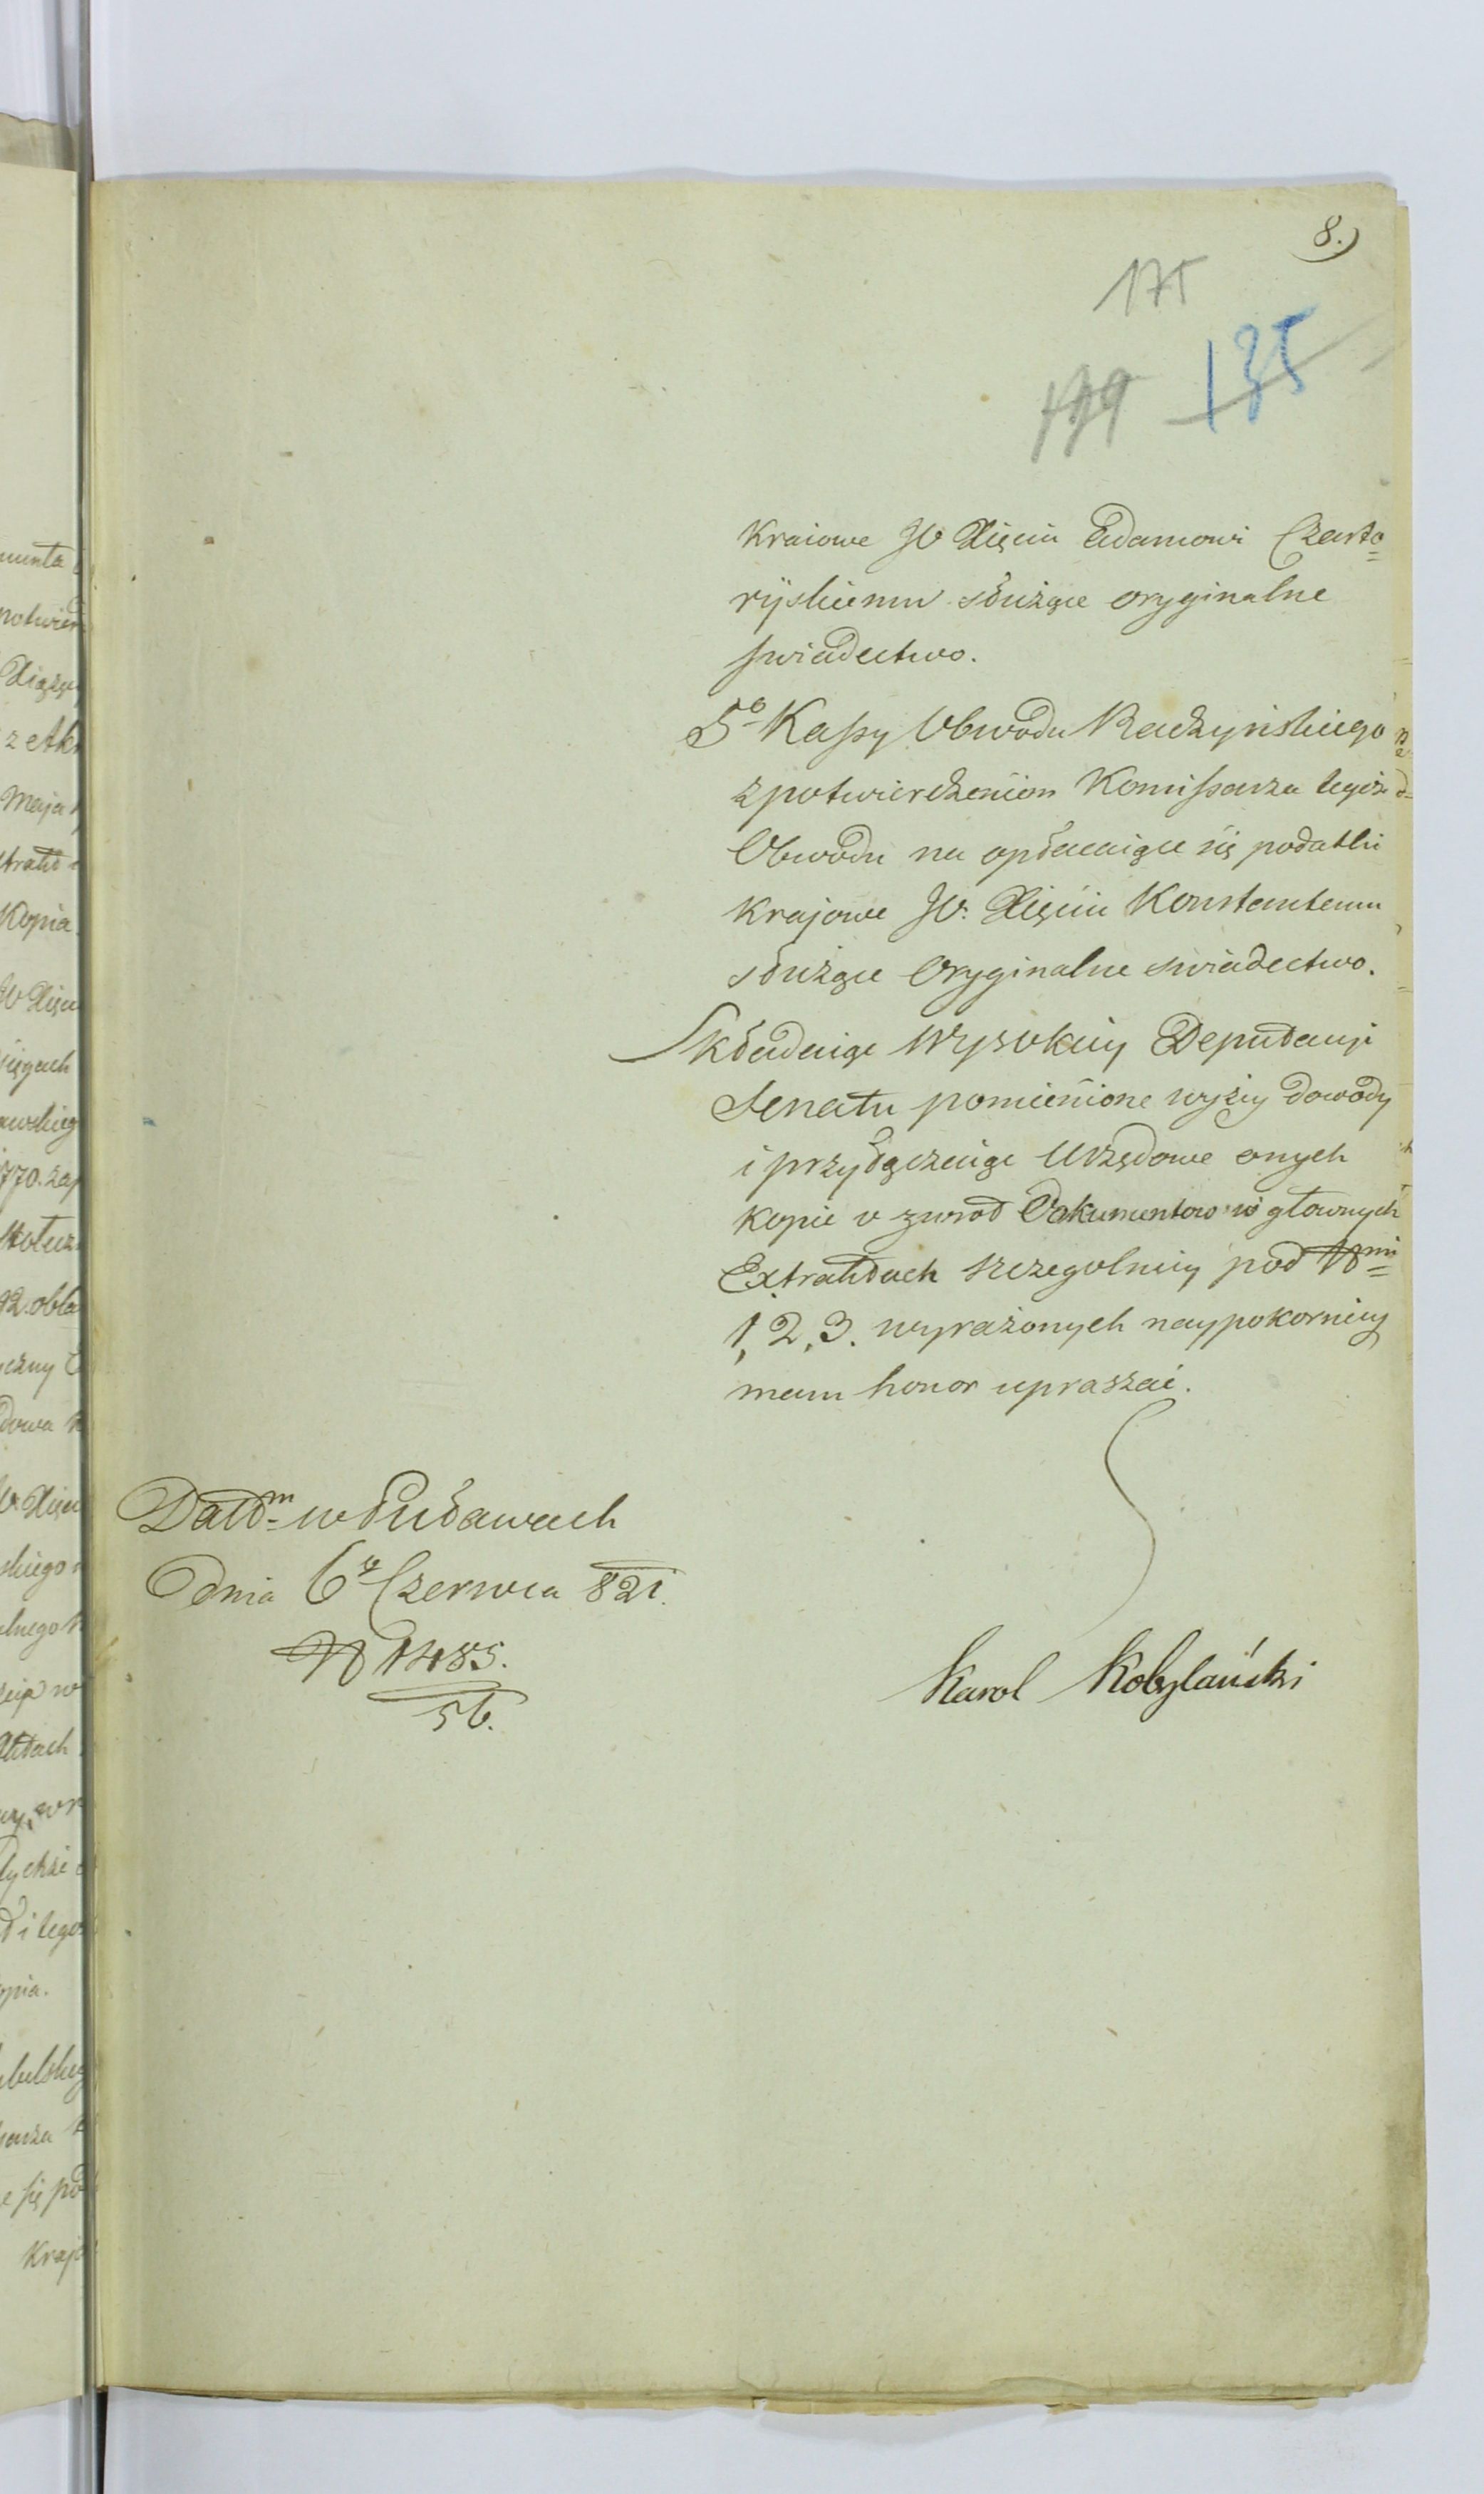 8.)
175
199 135
kraiowe JO Xięciu Adamowi Czarto=
ryiskiemu służące oryginalne
swiadectwo.
5o Kassy Obwodu Radzyńskiego
z potwierdzeniem Komissarza tegóż
Obwodu na opłacaiące się podatki
krajowe JO. Xięciu Konstantemu
służące Oryginalne swiadectwo.
Składaiąc Wysokiey Deputacyi
Senatu pomienione wyżey dowody
i przyłączaiąc Urzędowe onych
kopie o zwrod Dokumentow w głownych
Extraktach szczegolniey pod Nmi
1, 2, 3. wyrażonych naypokorniey
mam honor upraszać.
Dattm w Puławach
dnia 6go Czerwca 821.
N 1485.
56.
Karol Kobylański